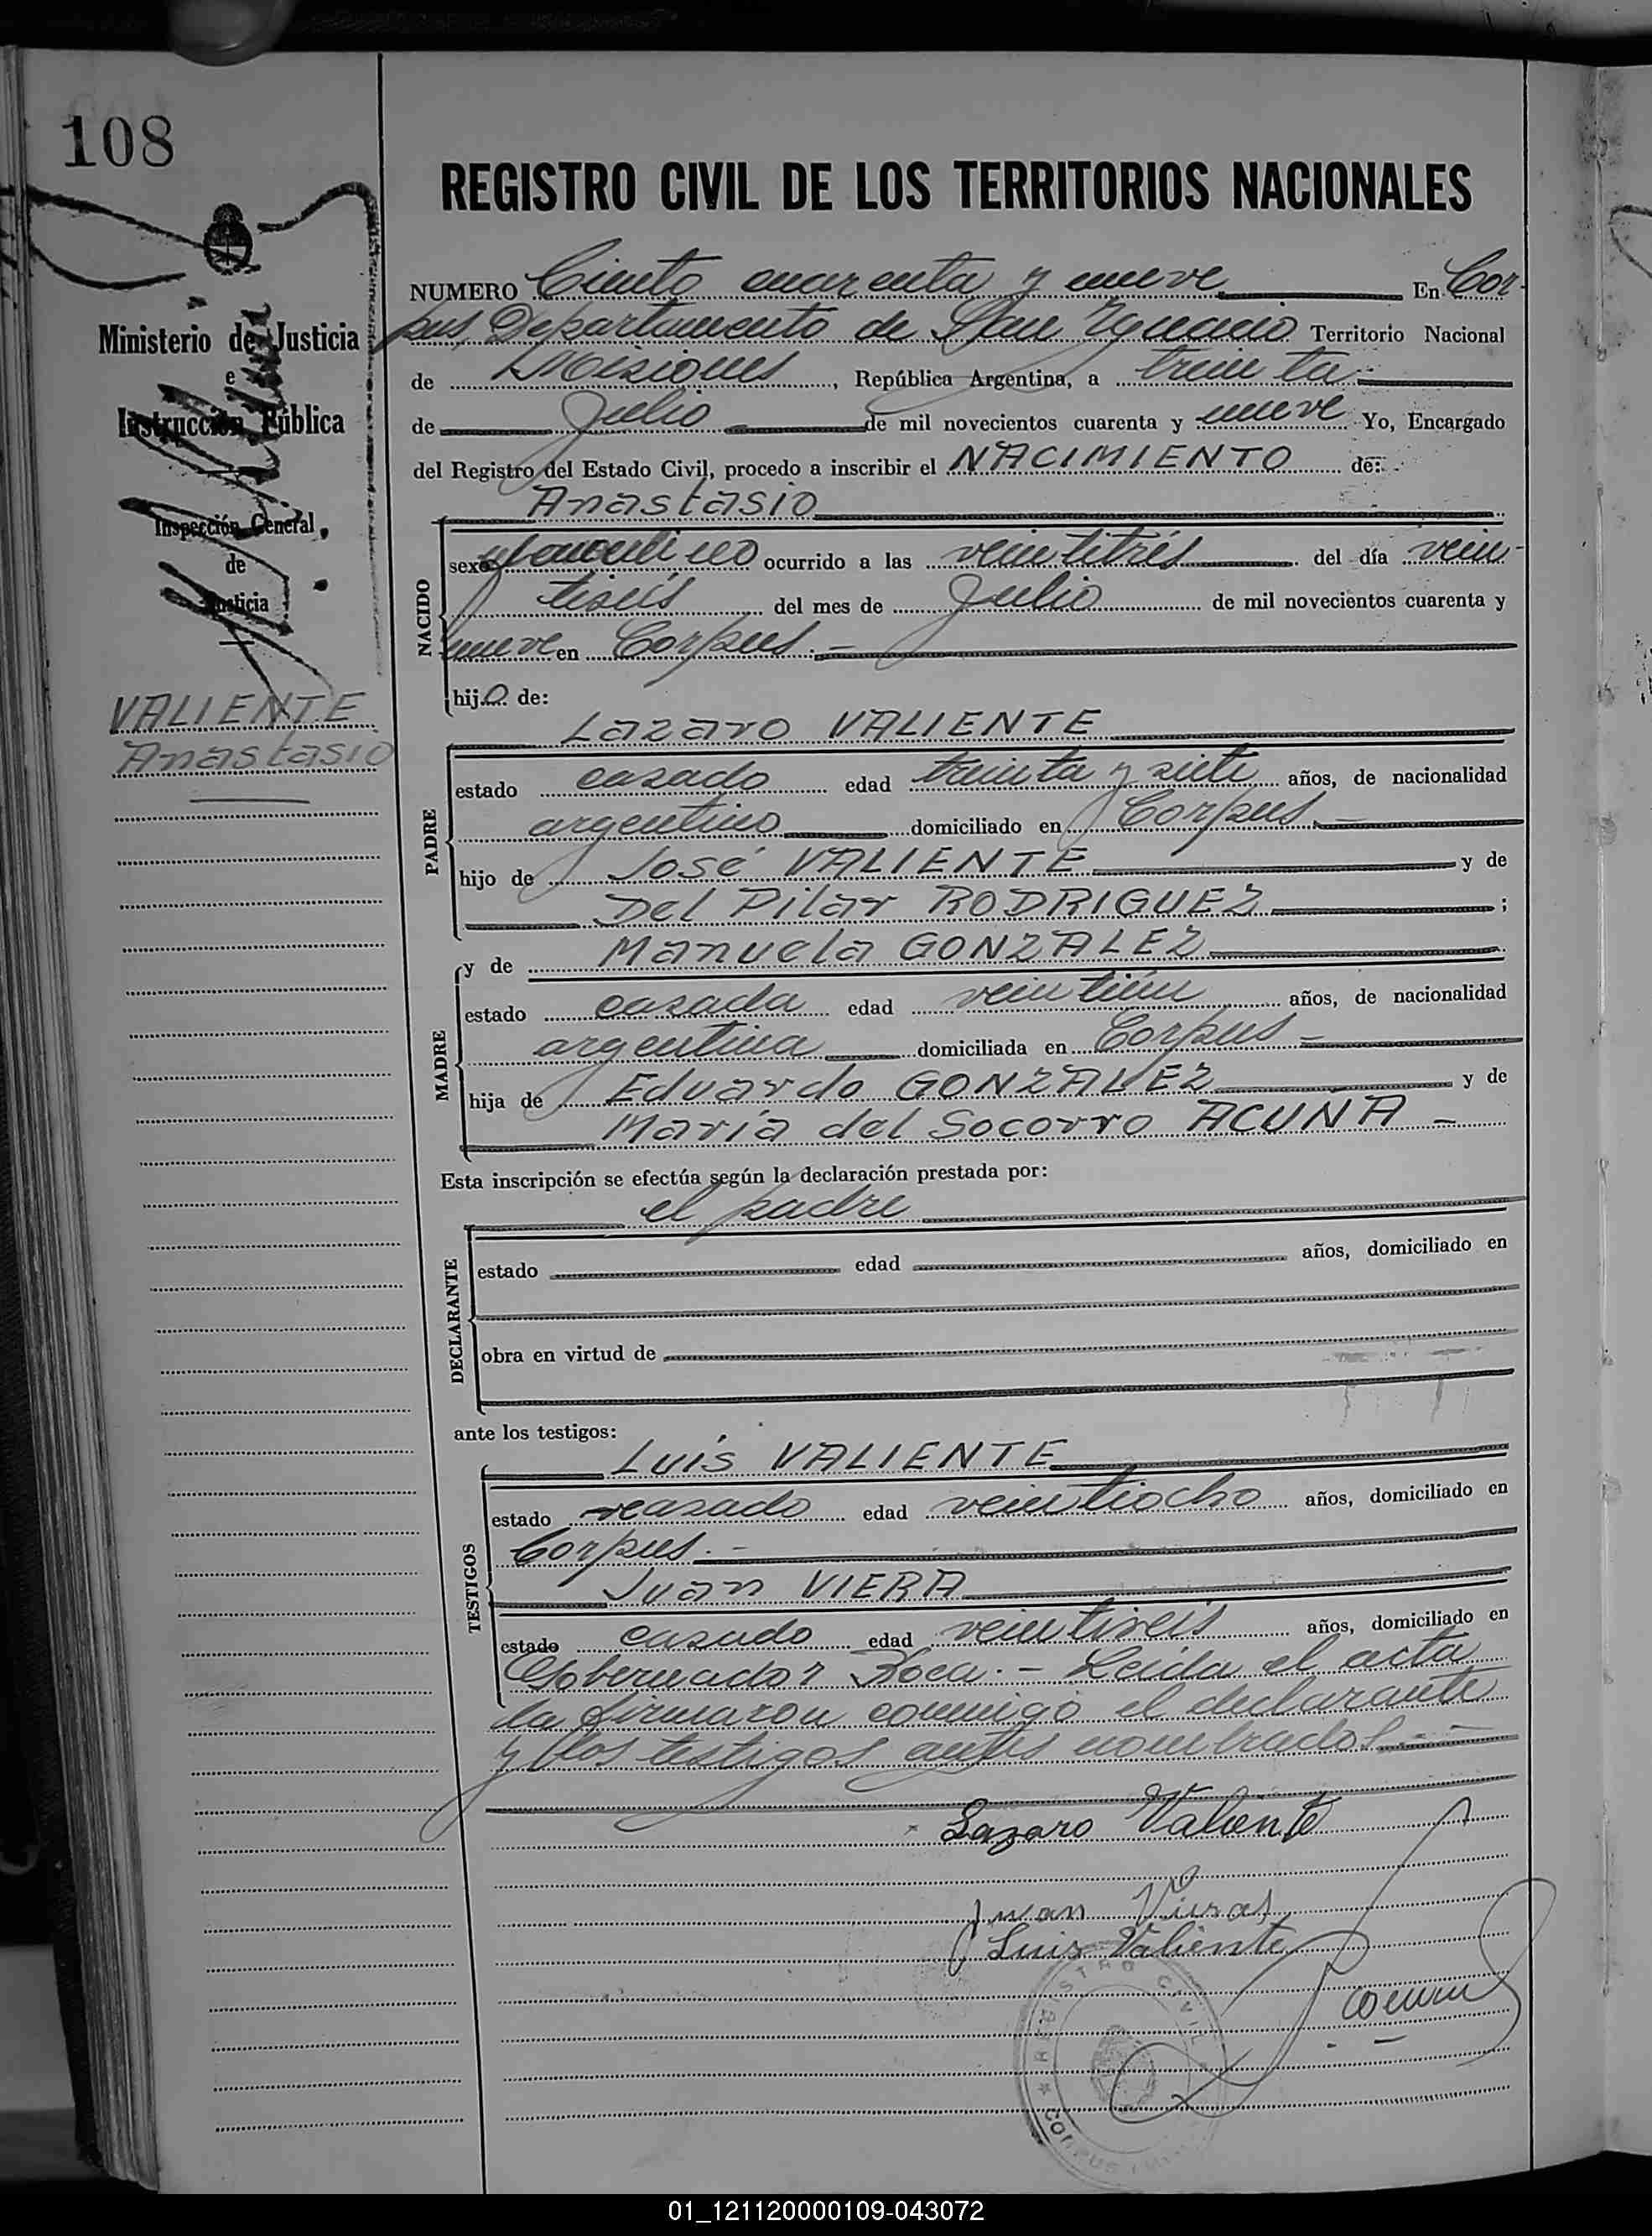 108
REGISTRO CIVIL DE LOS TERRITORIOS NACIONALES
NUMERO Ciento cuarenta y nueve En Cor-
pus, Departamento de San Ygnacio Territorio Nacional
de Misiones, República Argentina, a treinta
de Julio de mil novecientos cuarenta y nueve Yo, Encargado
del Registro del Estado Civil, procedo a inscribir el NACIMIENTO de:
Ministerio de Justicia
e
Instrucción Pública
Inspección General
de
Justicia
VALIENTE
Anastasio
NACIDO
Anastasio
sexo masculino ocurrido a las veintitrés del día vein-
tiseis del mes de Julio de mil novecientos cuarenta y
nueve en Corpus.-
hijo de:
PADRE
Lazaro VALIENTE
estado casado edad treinta y siete años, de nacionalidad
argentino domiciliado en Corpus.-
hijo de José VALIENTE y de
Del Pilar RODRIGUEZ ;
MADRE
y de Manuela GONZALEZ
estado casada edad veintiún años, de nacionalidad
argentina domiciliada en Corpus -
hija de Eduardo GONZALEZ y de
María del Socorro ACUÑA -
Esta inscripción se efectúa según la declaración prestada por:
el padre
DECLARANTE
estado edad años, domiciliado en
obra en virtud de
ante los testigos:
TESTIGOS
Luis VALIENTE
estado casado edad veintiocho años, domiciliado en
Corpus.-
Juan VIERA
estado casado edad veintiseis años, domiciliado en
Gobernador Roca.- Leida el acta
la firmaron conmigo el declarante
y los testigos antes nombrados.-
Lazaro Valiente
Juan
Luis Valiente
REGISTRO CIVIL
CORPUS
01_121120000109-043072